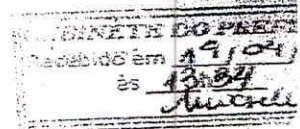 GABINETE DO PREF
Recebido em 19/04/
às 13:34